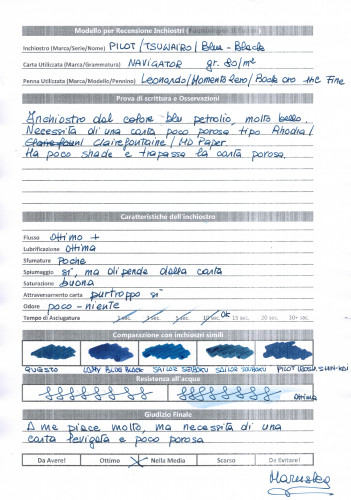 Modello per Recensione Inchiostri
Inchiostro (Marca/Serie/Nome) PILOT/TSUWAIRO/Blue-Black
Carta Utilizzata (Marca/Grammatura) NAVIGATOR gr. 80/m²
Penna Utilizzata (Marca/Modello/Pennino) Leonardo/Momento Zero/ oro 14C Fine
Prova di scrittura e Osservazioni
Inchiostro dal colore blu petrolio, molto bello.
Necessita di una carta poco porosa tipo Rhodia/
Clairefontaine/MD Paper.
Ha poco shade e trapassa la carta porosa.
Caratteristiche dell'inchiostro
Flusso ottimo +
Lubrificazione ottima
Sfumature Poche
Spiumaggio si, ma dipende dalla carta
Saturazione buona
Attraversamento carta purtroppo si
Odore poco-niente
Tempo di Asciugatura 1 sec. 3 sec. 5 sec. 10 sec. OK 15 sec. 20 sec. 30+ sec.
Comparazione con inchiostri simili
QUESTO LAMY BLUE BLACK SAILOR SEIBOKU SAILOR SOUBOKU PILOT IROSH. SHIN-KAI
Resistenza all'acqua
Ottima
Giudizio Finale
A me piace molto, ma necessita di una
carta levigata e poco porosa
Da Avere! Ottimo X Nella Media Scarso Da Evitare!